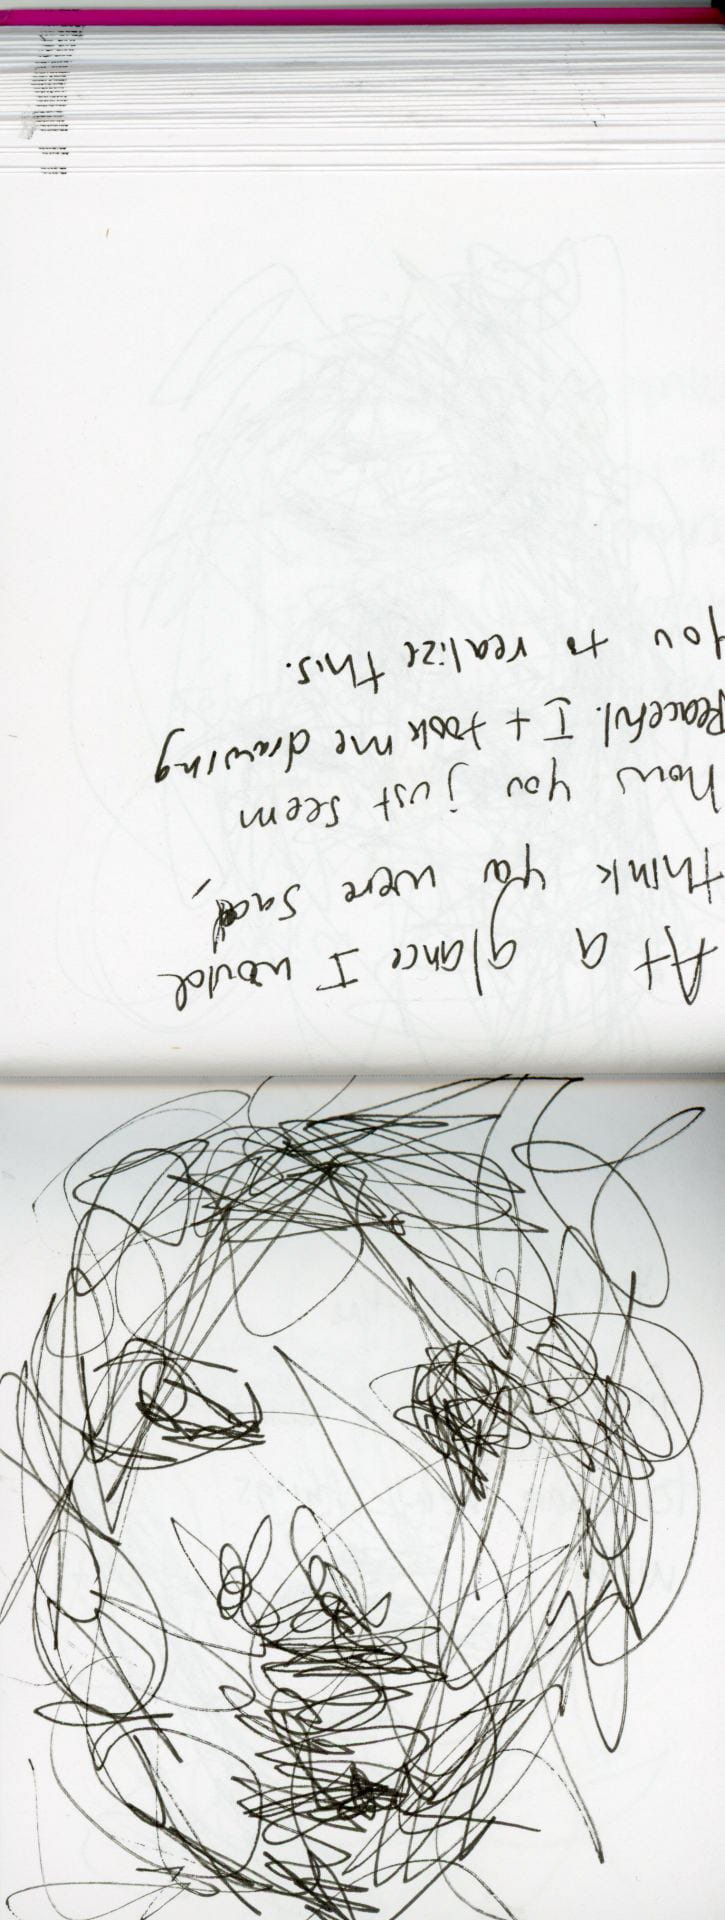 At a glance I would
think you were sad,
now you just seem
peaceful. It took me drawing
you to realize this.